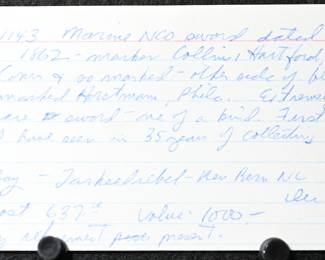 1143 Marine NCO sword dated
1862 - marker Collins Hartford,
Conn & so marked - other side of bl
marked Horstmann, Phila. Extreme
are sword - one of a kind. First
I have seen in 35 years of collecting
- Yankeerebel - New Bern NC
Dec
ost 637 Value: 1000 -
present.